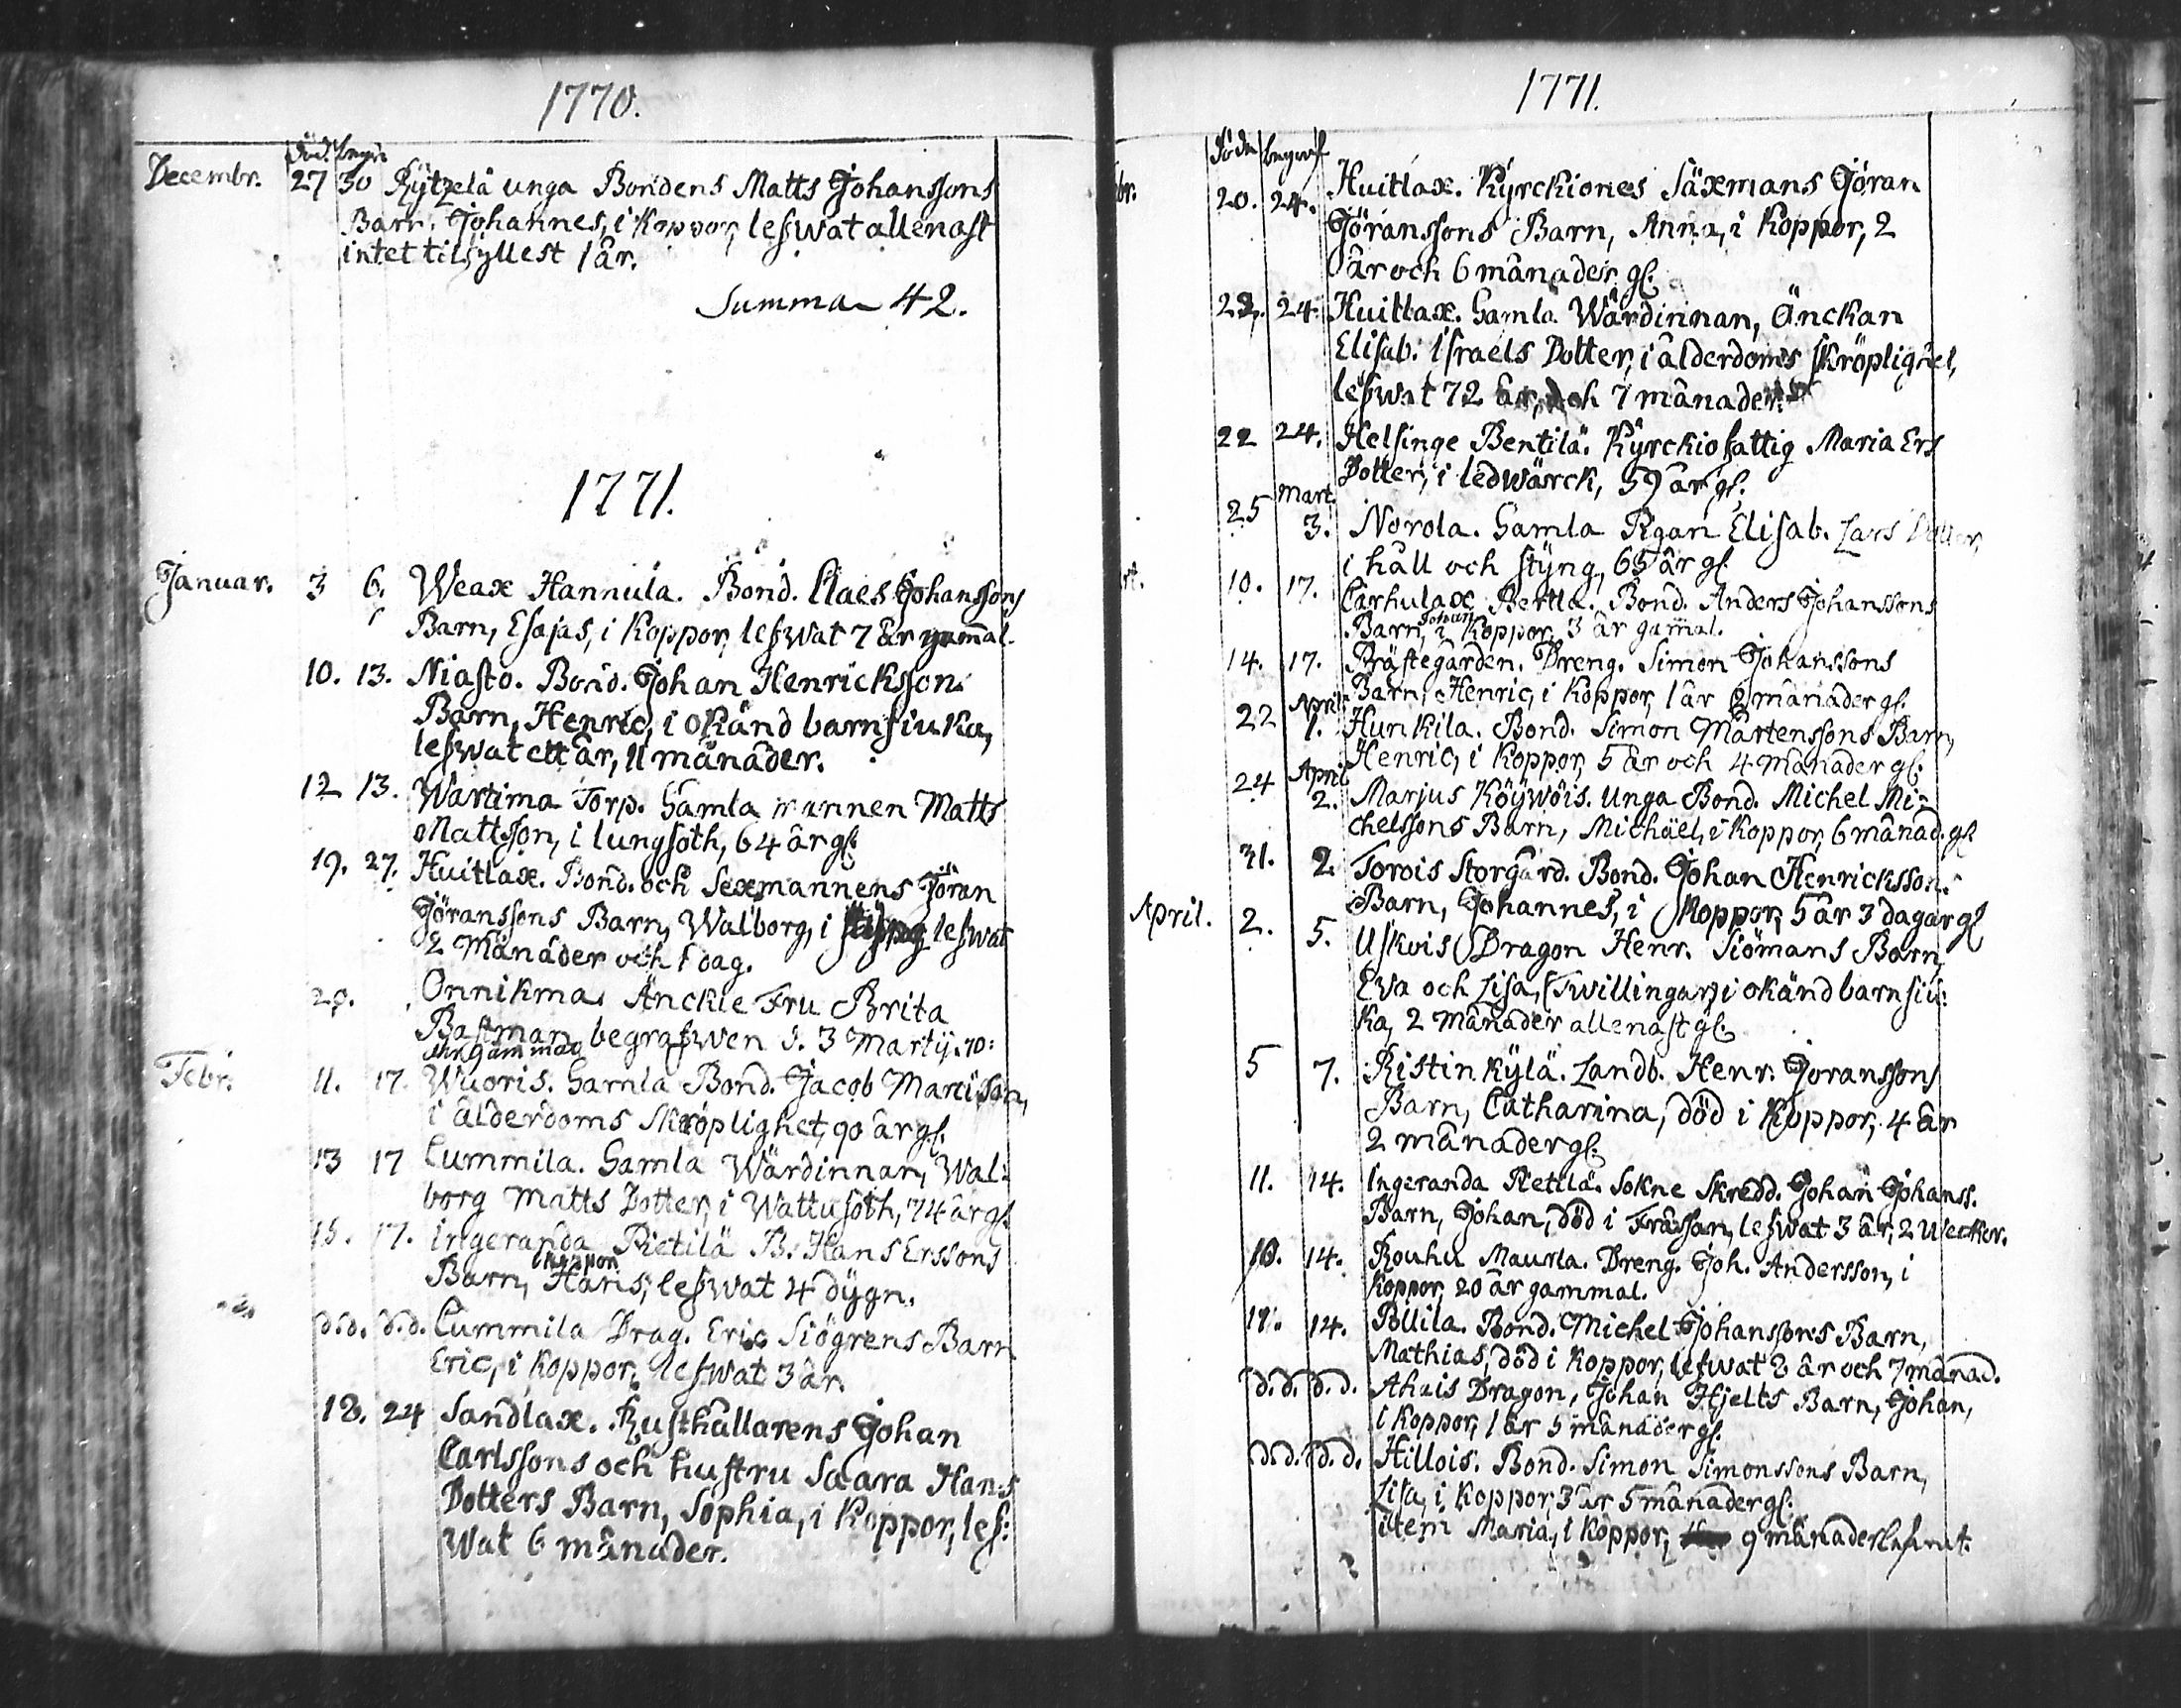 1770.
död. begr.
Decembr. 27 30 Rÿtzelä unga Bondens Matts Johanssons
Barn, Johannes, i Koppor, lefwat allenast
intet tilfyllest 1 år.
Summa 42.
1771.
Januar. 3 6. Weax Hannula. Bond. Claes Johanssons
Barn, Esajas, i Koppor, lefwat 7 år gammal.
10. 13. Niasto. Bond. Johan Henricksson.
Barn, Henric, i okänd barnsiuka,
lefwat ett år, 11 månader.
12 13. Wartima Torp. Gamla mannen Matts
Mattsson, i lungsoth, 64 år gl.
19. 27. Huitlax. Bond. och Sexmannens Jöran
Jöranssons Barn, Walborg, i lefwat
2 Månader och 1 dag.
29. Onnikma. Änckie Fru Brita
begrafwen d. 3 Martij. 70:
åhr gammal
Febr. 11. 17. Wuoris. Gamla Bond. Jacob Martisson,
i ålderdoms skröplighet, 90 år gl.
13 17 Cummila. Gamla Wärdinnan, Wal:
borg Matts Dotter, i Wattusoth, 74 år gl.
15. 17. Ingeranda Pietilä B. Hans Erssons
i Koppor
Barn, Hans, lefwat 4 dÿgn.
d.d. d.d. Cummila Drag. Eric Siögrens Barn
Eric, i Koppor, lefwat 3 år.
18. 24 Sandlax. Rusthållarens Johan
Carlssons och hustru Saara Hans
Dotters Barn, Sophia, i Koppor, lef:
wat 6 månader.
1771.
döde begraf
br. 20. 24. Huitlax. Kÿrckiones Säxmans Jöran
Jöranssons Barn, Anna, i Koppor, 2
år och 6 månader gl.
22. 24. Huitlax. Gamla Wärdinnan, Änckan
Elisab. Israels Dotter, i ålderdoms skröplighet,
lefwat 72 år, och 7 månader.
22 24. Helsinge Bentilä. Kÿrckiofattig Maria Ers
Dotter, i ledwärck, 59 år gl.
Mart.
25 3. Norola. Gamla Pigan Elisab. Lars Dotter,
i håll och stÿng, 65 år gl.
rt. 10. 17. Carhulax Bertla. Bond. Anders Johanssons
Johan
Barn, i Koppor, 3 år gamal.
14. 17. Prästegården. Dreng. Simon Johanssons
Barn, Henric, i Koppor, 1 år månader gl.
April
22 1. Hunkila. Bond. Simon Mårtenssons Barn,
Henric, i Koppor, 5 år och 4 månader gl.
April
24 2. Marjus Köÿwöis. Unga Bond. Michel Mi-
chelssons Barn, Michäel, i Koppor, 6 månad. gl
31. 2 Torois Storgård. Bond. Johan Henricksson.
Barn, Johannes, i Koppor, 5 år 3 dagar gl
April. 2. 5. Uskois Dragon Henr. Siömans Barn,
Eva och Lisa, (Twillingar) i okänd barnsiu:
ka, 2 Månader allenast gl.
5 7. Ristinkÿlä. Landb. Henr. Joranssons
Barn, Catharina, död i Koppor, 4 år
2 månader gl.
11. 14. Ingeranda Pietilä. Sokne Skredd. Johan Johanss.
Barn, Johan, död i Frässan, lefwat 3 år, 2 Weckor.
10. 14. Rouhu Maurla. Dreng. Joh. Andersson, i
Koppor, 20 år gammal.
14. Pillila. Bond. Michel Johanssons Barn,
Mathias, död i Koppor, lefwat 2 år och 7 månad.
d.d. d.d. Ahais Dragon, Johan Hjelts Barn, Johan,
i Koppor, 1 år 5 månader gl.
d.d. d.d. Hillois. Bond. Simon Simonssons Barn,
Lisa, i Koppor, 3 år 5 månader gl.
item Maria, i Koppor, 9 månader lefwat.